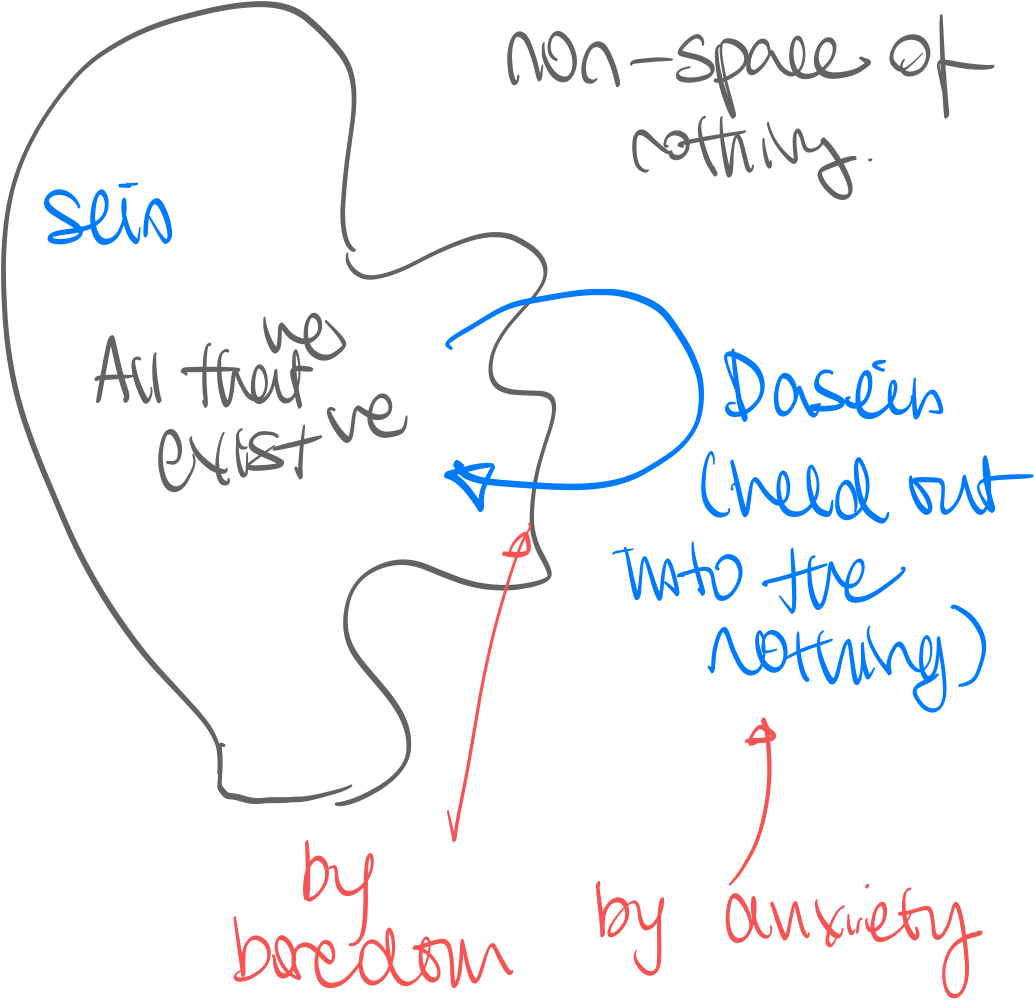 non-space of
nothing.
seis
All that
exist
Dasein
(held out
into the
nothing)
by
boredom
by anxiety